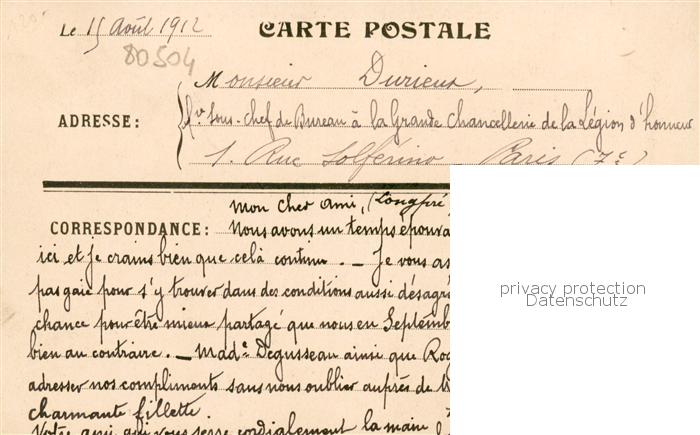 Le 15 Août 1912 CARTE POSTALE
80504
Monsieur Durieux,
ADRESSE: Sous-chef de Bureau à la Grande Chancellerie de la Légion d'honneur
1. Rue Solférino - Paris (7e)
mon cher ami, (Longpré
CORRESPONDANCE: Nous avons un temps épouva
ici et je crains bien que celà continu. - Je vous as
pas gaie pour s'y trouver dans des conditions aussi désagré
chance pour être mieux partagé que nous en Septemb
bien au contraire. - Made Degusseau ainsi que Ro
adresser nos compliments sans nous oublier auprès de
charmante fillette.
Votre ami qui vous serre cordialement la main
privacy protection
Datenschutz